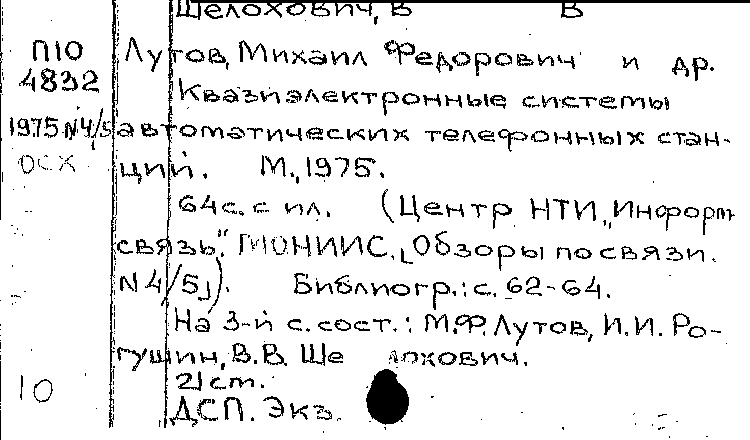 Шелохович, В В
П10 Лутов, Михаил Федорович и др.
4832 Квазиэлектронные системы
1975 N4/5 автоматических телефонных стан-
ОСХ ций. М., 1975.
64 с. с ил. (Центр НТИ „Информ
связь". ЦНИИС. [Обзоры по связи.
N 4/5]). Библиогр.: с. 62-64.
На 3-й с. сост.: М.Ф. Лутов, И.И. Ро-
гушин, В.В. Ше лохович.
21 cm.
10 ДСП. Экз.